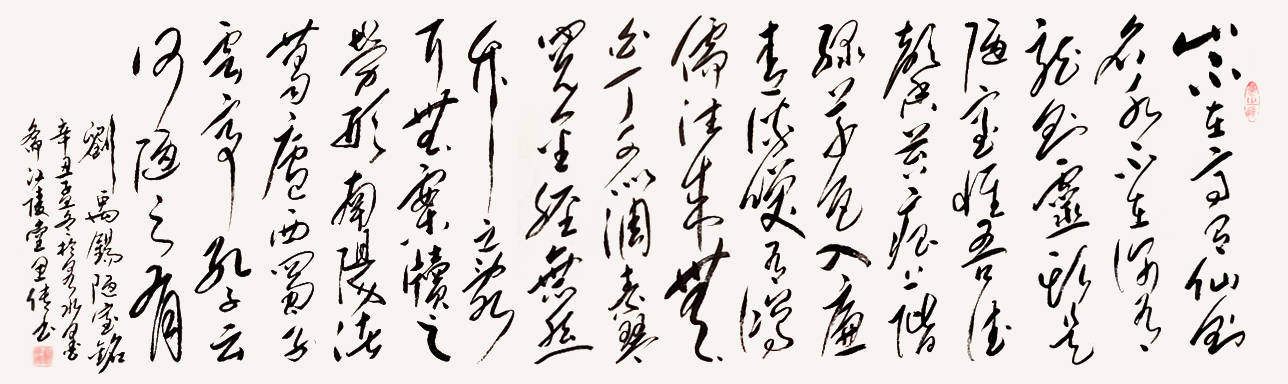 山不在高有仙則
名水不在深有
龍則靈斯是
陋室惟吾德
馨苔痕上階
綠草色入廉
青談咲有鴻
儒往來無
白丁可以調素琴
閱金經無絲
竹之亂
耳無案牘之
勞形南陽諸
葛廬西蜀子
雲亭孔子云
何陋之有
劉禹錫陋室銘
辛丑孟冬於水墨
江陵堂書